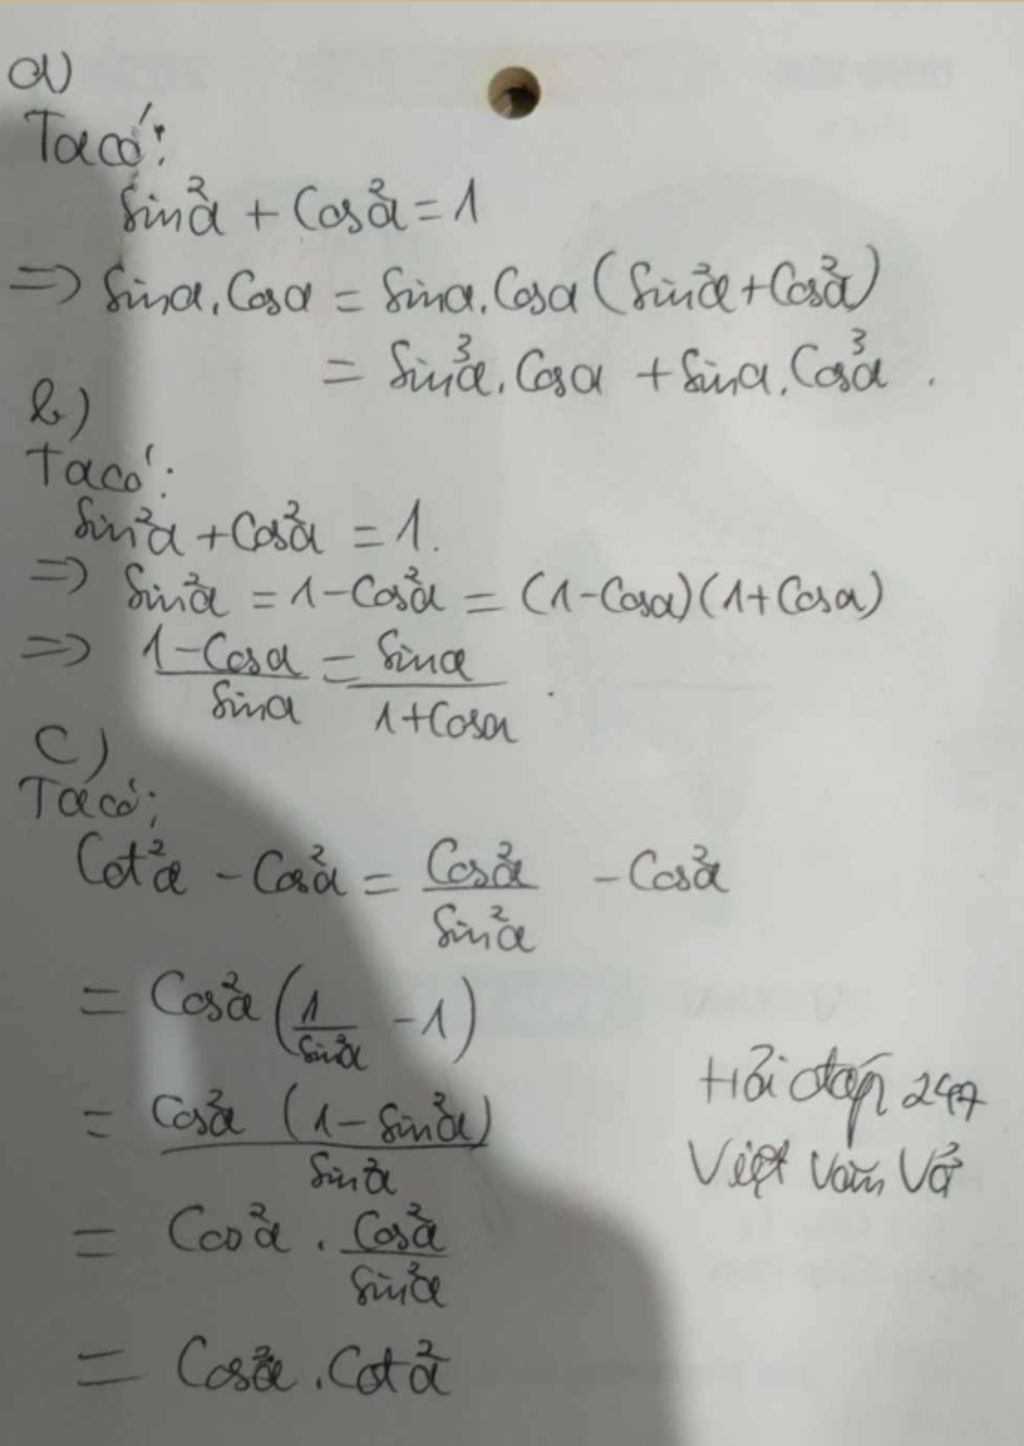 a)
Ta có:
Sin²α + Cos²α = 1
=> Sinα.Cosα = Sinα.Cosα (Sin²α + Cos²α)
= Sin³α.Cosα + Sinα.Cos³α.
b)
Ta có:
Sin²α + Cos²α = 1.
=> Sin²α = 1 - Cos²α = (1 - Cosα)(1 + Cosα)
=> (1 - Cosα)/Sinα = Sinα/(1 + Cosα).
C)
Ta có:
Cot²α - Cos²α = Cos²α/Sin²α - Cos²α
= Cos²α (1/Sin²α - 1)
= Cos²α (1 - Sin²α)/Sin²α
= Cos²α . Cos²α/Sin²α
= Cos²α . Cot²α
Hỏi đáp 247
Việt Văn Vở